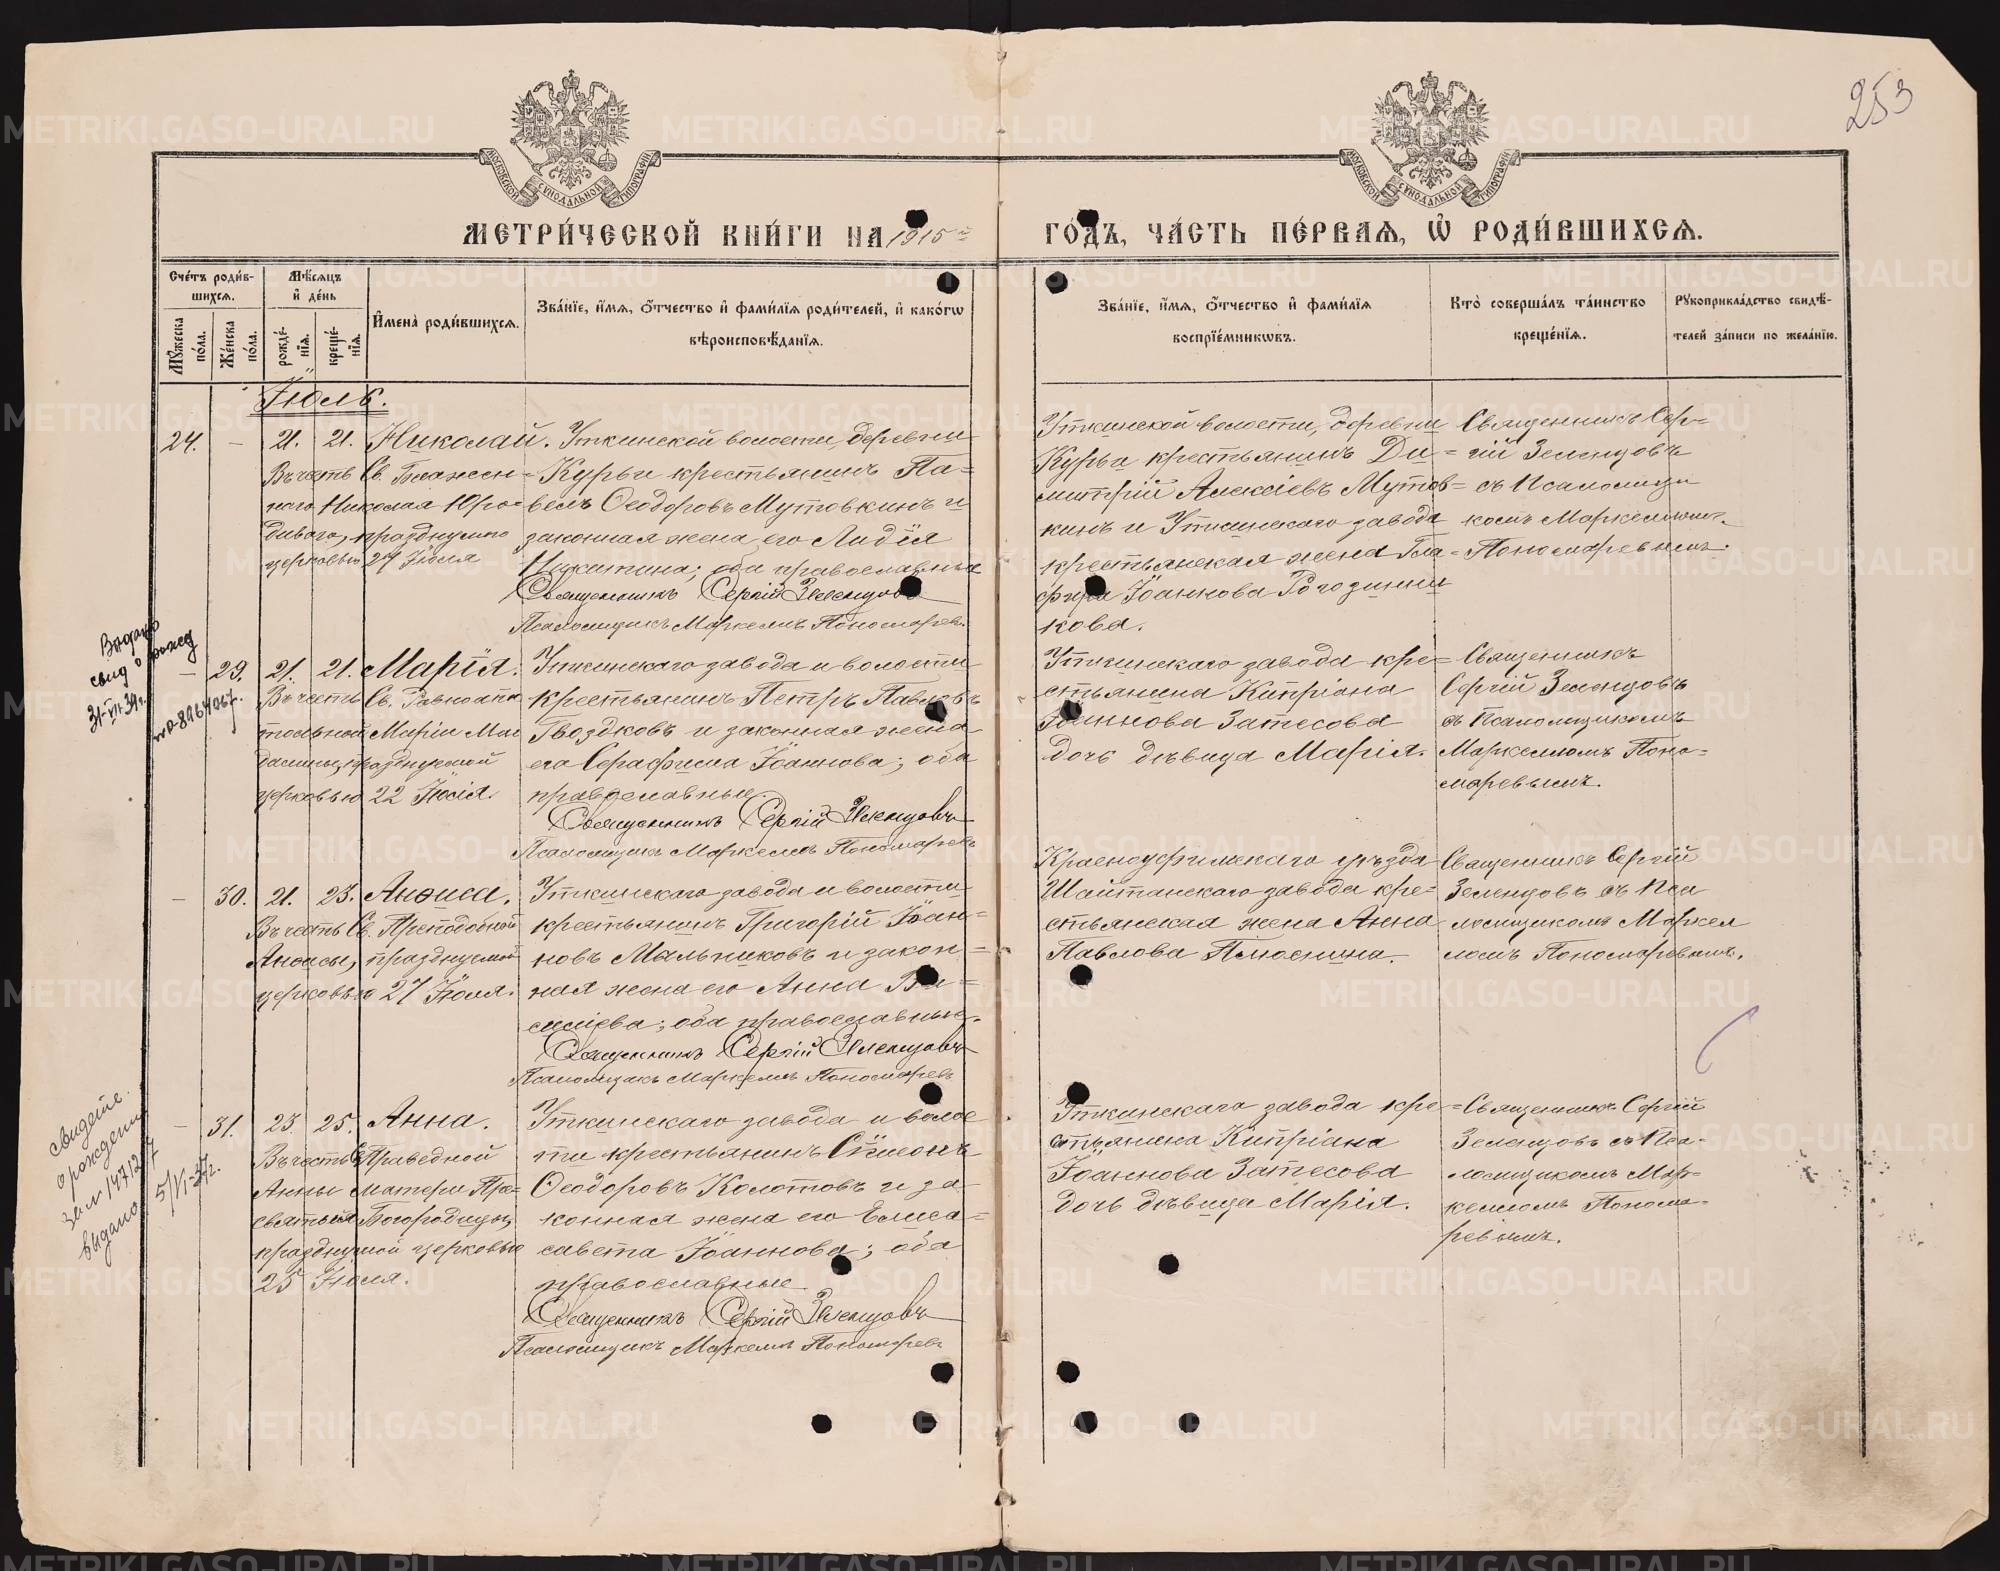 253
МОСКОВСКОЙ СѴНОДАЛЬНОЙ ТИПОГРАФІИ
МОСКОВСКОЙ СѴНОДАЛЬНОЙ ТИПОГРАФІИ
МЕТРИ́ЧЕСКОЙ КНИ́ГИ НА 1915й ГО́ДЪ, ЧА́СТЬ ПЕ́РВАѦ, Ѡ҆ РОДИ́ВШИХСѦ.
Сче́тъ роди́в-
шихсѧ.
Мꙋ́жеска по́ла.
Же́нска по́ла.
Мѣ́сѧцъ
и҆ де́нь
рожде́-
нїѧ.
креще́-
нїѧ.
И҆мена̀ роди́вшихсѧ.
Зва́нїе, и҆́мѧ, ѻ҆́тчество и҆ фами́лїѧ роди́телей, и҆ како́гѡ
вѣроисповѣ́данїѧ.
Зва́нїе, и҆́мѧ, ѻ҆́тчество и҆ фами́лїѧ
воспрїе́мникѡвъ.
Кто̀ соверша́лъ та́инство
креще́нїѧ.
Рꙋкоприкла́дство свидѣ́-
телей за́писи по жела́нїю.
Іюль.
24. – 21. 21. Николай.
Въ честь Св. Блажен-
наго Николая Юро-
диваго, празднуемаго
церковью 27 Іюля
Уткинской волости, деревни
Курьи крестьянинъ Па-
велъ Ѳеодоровъ Мутовкинъ и
законная жена его Лидія
Никитина; оба православные
Священникъ Сергій Зеленцовъ
Псаломщикъ Маркеллъ Пономаревъ.
Уткинской волости, деревни
Курьи крестьянинъ Ди-
митрій Алексіевъ Мутов-
кинъ и Уткинскаго завода
крестьянская жена Гла-
фира Іоаннова Рогозинни
кова.
Священникъ Сер-
гій Зеленцовъ
съ Псаломщи
комъ Маркелломъ
Пономаревымъ.
Выдано
свид о рожд
31-VII-34г.
– 29. 21. 21. Марія.
Въ честь Св. Равноапо
стольной Маріи Маг
далины, празднуемой
церковью 22 Іюля.
Уткинскаго завода и волости
крестьянинъ Петръ Павловъ
Гвоздковъ и законная жена
его Серафима Іоаннова; оба
православные.
Священникъ Сергій Зеленцовъ
Псаломщикъ Маркеллъ Пономаревъ
Уткинскаго завода кре-
стьянина Кипріана
Іоаннова Затесова
дочь дѣвица Марія.
Священникъ
Сергій Зеленцовъ
съ Псаломщикомъ
Маркелломъ Поно-
маревымъ.
– 30. 21. 23. Анѳиса.
Въ честь Св. Преподобной
Анѳисы, празднуемой
церковью 27 Іюля.
Уткинскаго завода и волости
крестьянинъ Григорій Іоан-
новъ Мыльниковъ и закон-
ная жена его Анна Ва-
силіева; оба православные.
Священникъ Сергій Зеленцовъ
Псаломщикъ Маркеллъ Пономаревъ
Красноуфимскаго уѣзда
Шайтанскаго завода кре-
стьянская жена Анна
Павлова Плюснина.
Священникъ Сергій
Зеленцовъ съ Пса
ломщикомъ Маркел
ломъ Пономаревымъ.
свидете.
о рождении
за № 147127
выдано 5/VI-37г.
– 31. 23. 25. Анна.
Въ честь Св. Праведной
Анны матери Пре-
святыя Богородицы,
празднуемой церковью
25 Іюля.
Уткинскаго завода и волос
ти крестьянинъ Сѵмеонъ
Ѳеодоровъ Колотовъ и за
конная жена его Елиса-
савета Іоаннова; оба
православные
Священникъ Сергій Зеленцовъ
Псаломщикъ Маркеллъ Пономаревъ
Уткинскаго завода кре-
стьянина Кипріана
Іоаннова Затесова
дочь дѣвица Марія.
Священникъ Сергій
Зеленцовъ съ Пса-
ломщикомъ Мар-
келломъ Понома-
ревымъ.
METRIKI.GASO-URAL.RU